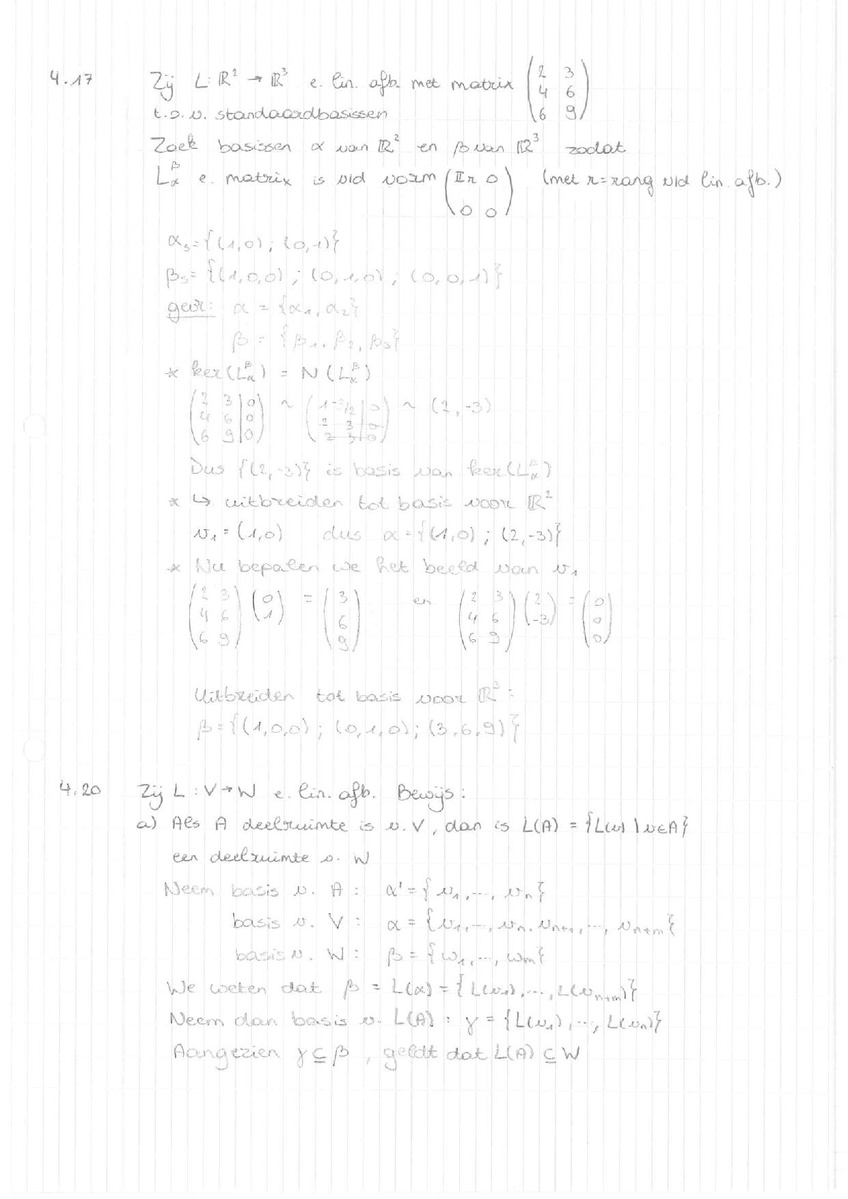 4.17 Zij L: ℝ² → ℝ³ e. lin. afb. met matrix (2 3; 4 6; 6 9)
t.o.v. standaardbasissen
Zoek basissen α van ℝ² en β van ℝ³ zodat
L_α^β e. matrix is v/d vorm (𝕀r 0; 0 0) (met r = rang v/d lin. afb.)
α_s = {(1,0) ; (0,1)}
β_s = {(1,0,0) ; (0,1,0) ; (0,0,1)}
gevr: α = {α₁, α₂}
β = {β₁, β₂, β₃}
* ker(L_α^β) = N(L_α^β)
(2 3 | 0; 4 6 | 0; 6 9 | 0) ~ (1 -3/2 | 0; 2 3 0; 2 3 | 0) ~ (2, -3)
Dus {(2,-3)} is basis van ker(L_α^β)
* ↳ uitbreiden tot basis voor ℝ²
v₁ = (1,0) dus α = {(1,0) ; (2,-3)}
* Nu bepalen we het beeld van v₁
(2 3; 4 6; 6 9) (0; 1) = (3; 6; 9) en (2 3; 4 6; 6 9) (2; -3) = (0; 0; 0)
Uitbreiden tot basis voor ℝ³:
β = {(1,0,0) ; (0,1,0) ; (3,6,9)}
4.20 Zij L: V → W e. lin. afb. Bewijs:
a) Als A deelruimte is v. V, dan is L(A) = {L(v) | v∈A}
een deelruimte v. W
Neem basis v. A: α' = {v₁, ..., vₙ}
basis v. V: α = {v₁, ..., vₙ, vₙ₊₁, ..., vₙ₊ₘ}
basis v. W: β = {w₁, ..., wₘ}
We weten dat β = L(α) = {L(v₁), ..., L(vₙ₊ₘ)}
Neem dan basis v. L(A): γ = {L(v₁), ..., L(vₙ)}
Aangezien γ ⊆ β, geldt dat L(A) ⊆ W